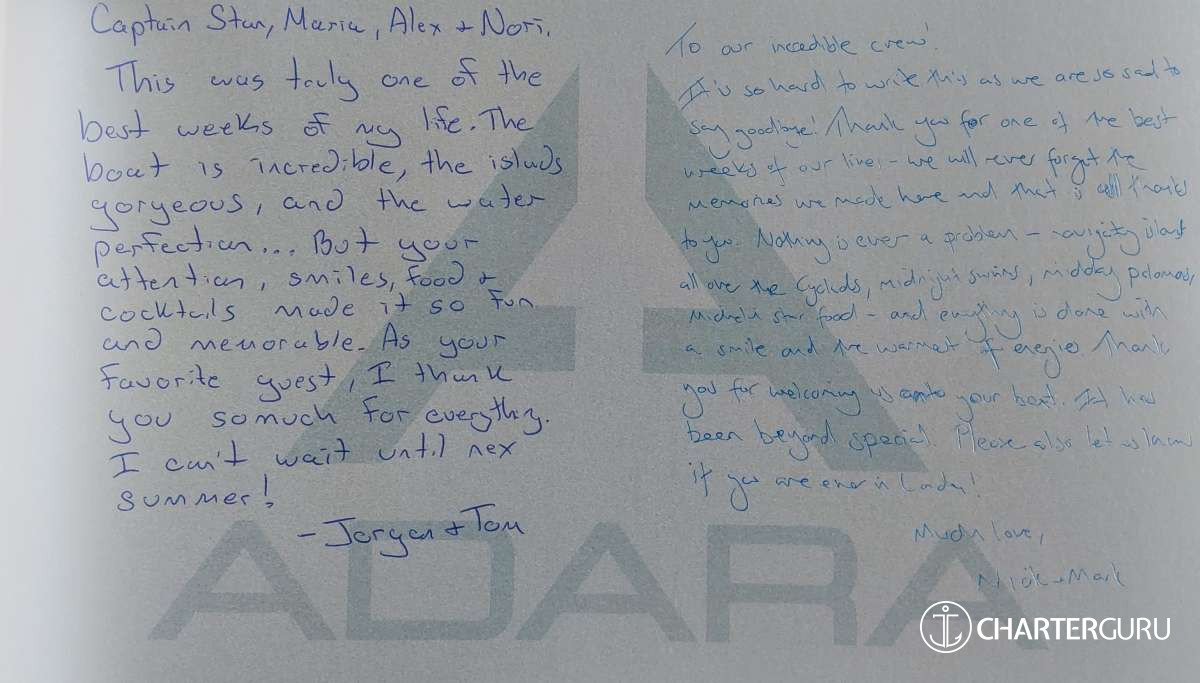 Captain Stav, Maria, Alex + Nori,
This was truly one of the
best weeks of my life. The
boat is incredible, the islads
gorgeous, and the water
perfection... But your
attention, smiles, food +
cocktails made it so fun
and memorable. As your
favorite guest, I thank
you somuch for everything.
I can't wait until nex
summer!
- Jorgen + Tom
To our incredible crew!
It is so hard to write this as we are so sad to
say goodbye! Thank you for one of the best
weeks of our lives - we will never forget the
memories we made here and that is all thanks
to you. Nothing is ever a problem -
all over the Cyclads, midnight swims, midday palomas,
Michelin star food - and everything is done with
a smile and the warmest of energie. Thank
you for welcoming us onto your boat. It has
been beyond special. Please also let us know
if you are ever in London!
Much love,
Nick + Mark
ADARA
CHARTERGURU